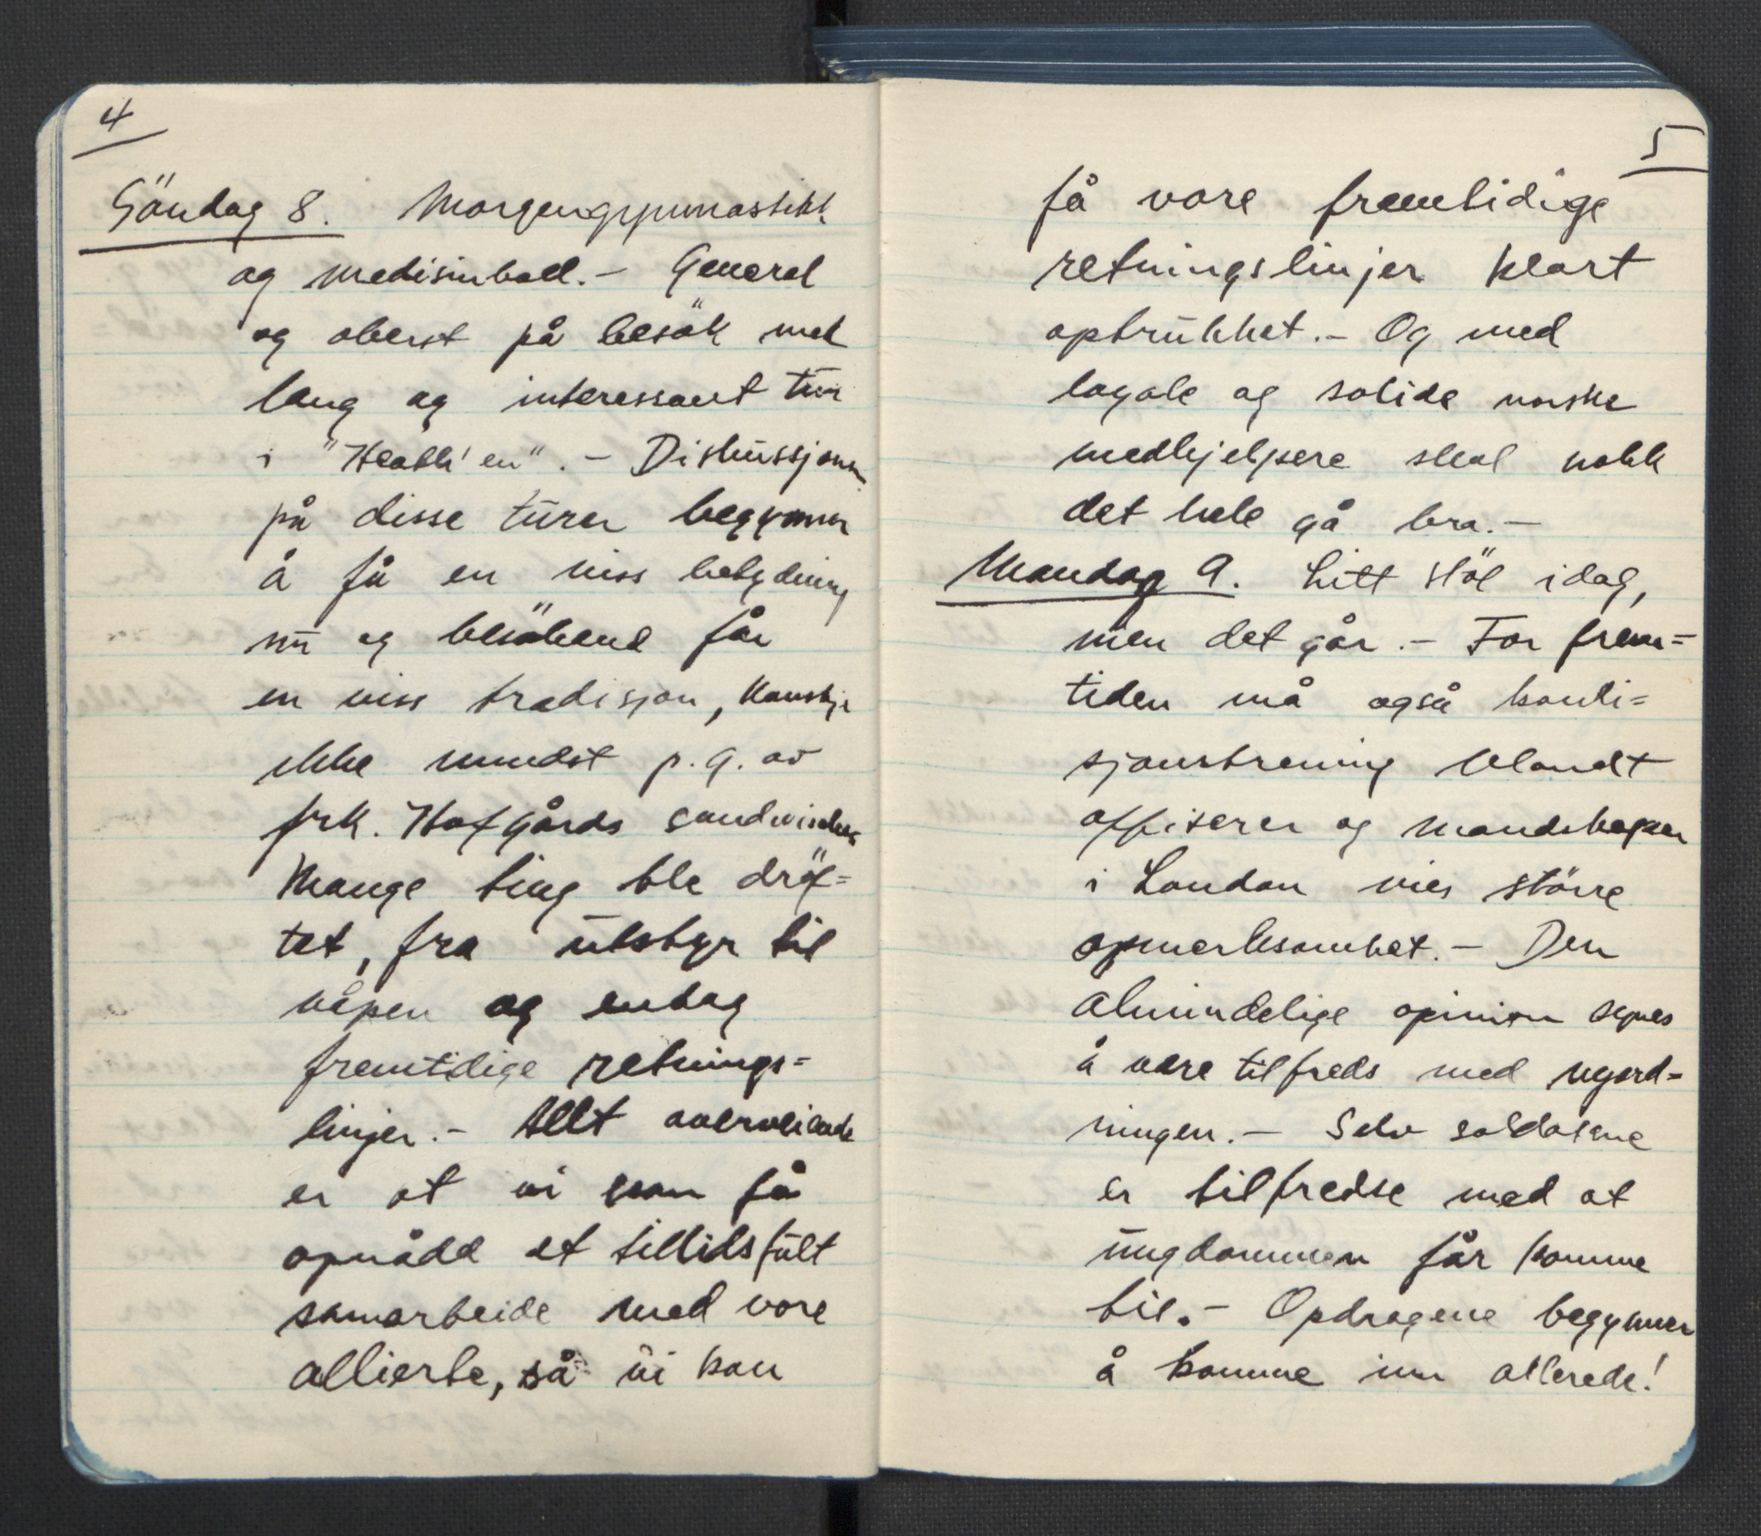 4
Söndag 8. Morgengymnastikk
og medisinball. - General
og oberst på besök med
lang og interessant tur
i "Heath'en". - Diskussjonen
på disse turer begynner
å få en viss betydning
nu og besökene får
en viss tradisjon, kanskje
ikke mindst p.g. av
frk. Hofgårds sandwiches
Mange ting ble dröf=
tet, fra utstyr til
våpen og endog
fremtidige retnings=
linjer. - Allt overveiende
er at vi kan få
opnådd et tillidsfült
samarbeide med vore
allierte, så vi kan
5
få vore fremtidige
retningslinjer klart
optrukket. - Og med
loyale og solide norske
medhjelpere skal nokk
det hele gå bra. -
Mandag 9. Litt støl idag,
men det går. - For frem=
tiden må også kondi=
sjonstrening blandt
offiserer og mandskaper
i London vies större
opmerksomhet. - Den
almindelige opinion synes
å være tilfreds med nyord=
ningen. - Selv soldatene
er tilfredse med at
ungdommen får komme
til. - Opdragene begynner
å komme inn allerede!